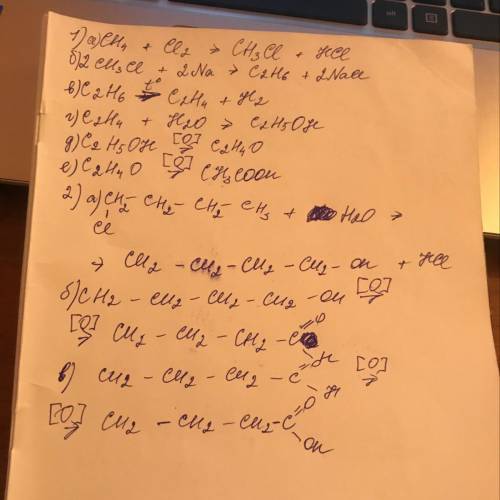 1) а) CH4 + Cl2 → CH3Cl + HCl
б) 2CH3Cl + 2Na → C2H6 + 2NaCl
в) C2H6 t° → C2H4 + H2
г) C2H4 + H2O → C2H5OH
д) C2H5OH [O] → C2H4O
е) C2H4O [O] → CH3COOH
2) а) CH2 - CH2 - CH2 - CH3 + H2O →
Cl
→ CH2 - CH2 - CH2 - CH2 - OH + HCl
б) CH2 - CH2 - CH2 - CH2 - OH [O] →
[O] → CH2 - CH2 - CH2 - C = O
H
в) CH2 - CH2 - CH2 - C = O [O] →
H
[O] → CH2 - CH2 - CH2 - C = O
OH